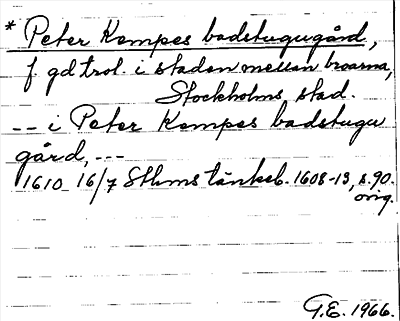 * Peter Kempes badstugugård,
f gd trol. i staden mellan broarna,
Stockholms stad.
-- i Peter Kempes badstugu
gård, ---
1610 16/7 Sthms tänkeb. 1608-13, s. 90.
orig.
G.E. 1966.